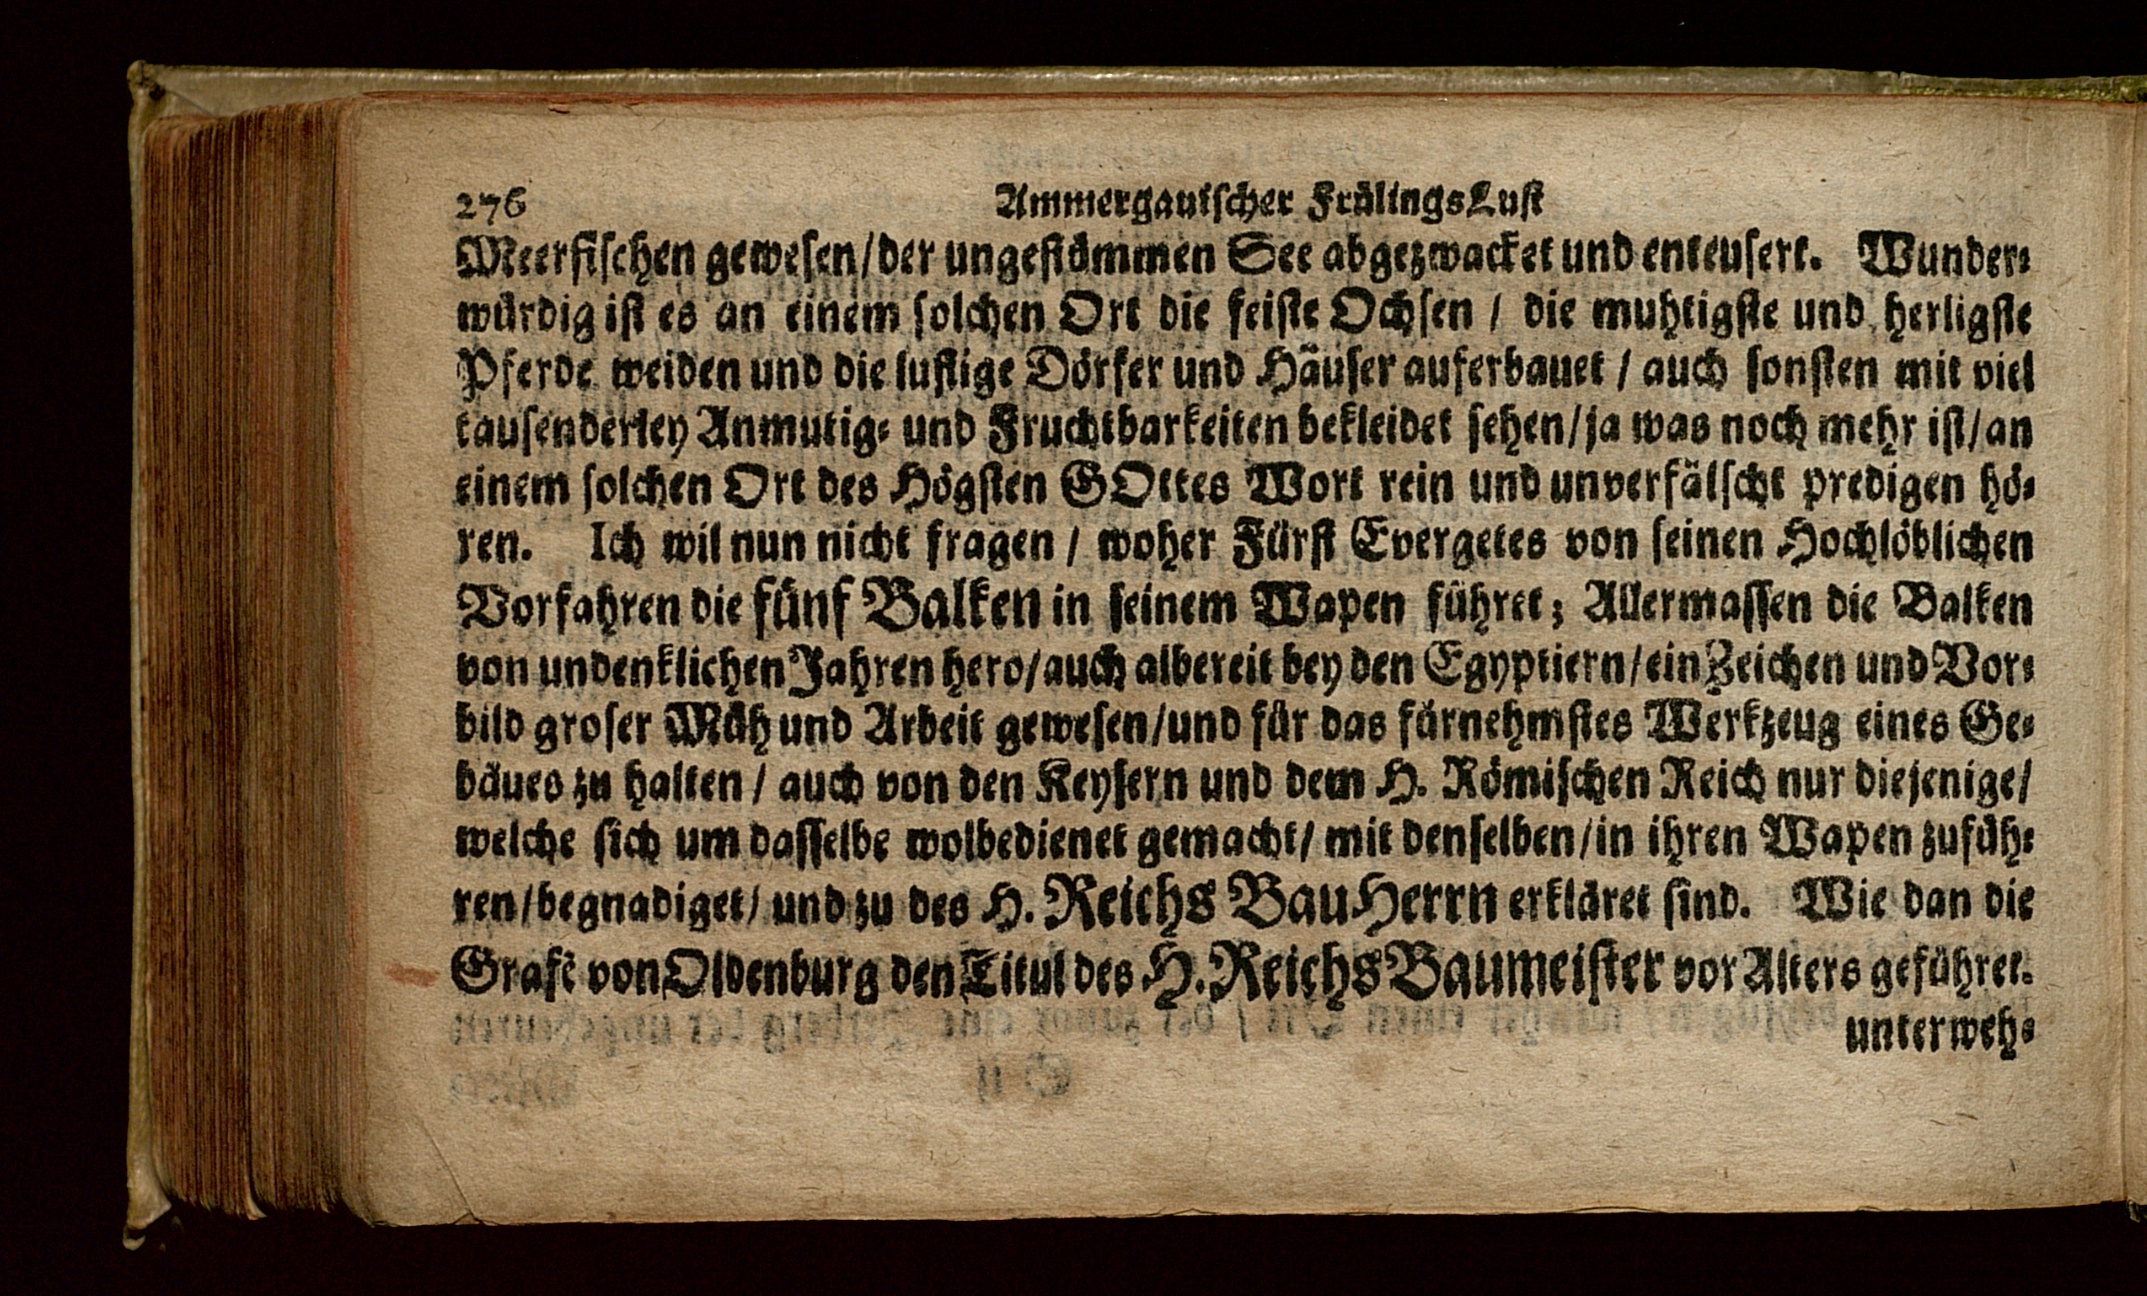 276 Ammergauiſcher FrülingsLuſt
Meerfiſchen geweſen/der ungeſtümmen See abgezwacket und enteuſert. Wunder⸗
würdig iſt es an einem ſolchen Ort die feiſte Ochſen / die muhtigſte und herligſte
Pferde weiden und die luſtige Dörfer und Häuſer auferbauet / auch ſonſten mit viel
tauſenderley Anmutig⸗ und Fruchtbarkeiten bekleidet ſehen/ja was noch mehr iſt/an
einem ſolchen Ort des Högſten GOttes Wort rein und unverfälſcht predigen hö⸗
ren. Ich wil nun nicht fragen / woher Fürſt Evergetes von ſeinen Hochlöblichen
Vorfahren die fünf Balken in ſeinem Wapen führet; Allermaſſen die Balken
von undenklichen Jahren hero/auch albereit bey den Egyptiern/ein Zeichen und Vor⸗
bild groſer Müh und Arbeit geweſen/und für das fürnehmſtes Werkzeug eines Ge⸗
bäues zu halten / auch von den Keyſern und dem H. Römiſchen Reich nur diejenige/
welche ſich um daſſelbe wolbedienet gemacht/ mit denſelben/in ihren Wapen zufüh⸗
ren/begnadiget/ und zu des H. Reichs BauHerrn erkläret ſind. Wie dan die
Grafẽ von Oldenburg den Titul des H. Reichs Baumeiſter vor Alters geführet.
unterweh⸗